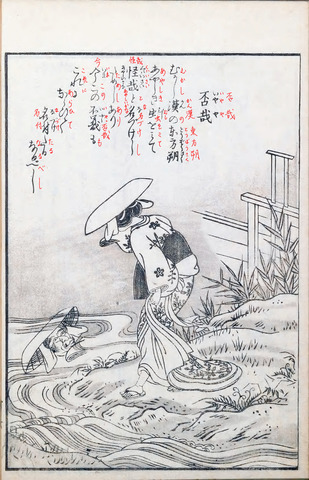 否哉
むかし漢の東方朔
あやしき虫をみて
怪哉と名づけし
ためしあり
今この否哉も
これに
ならひて
名付たる
なるべし